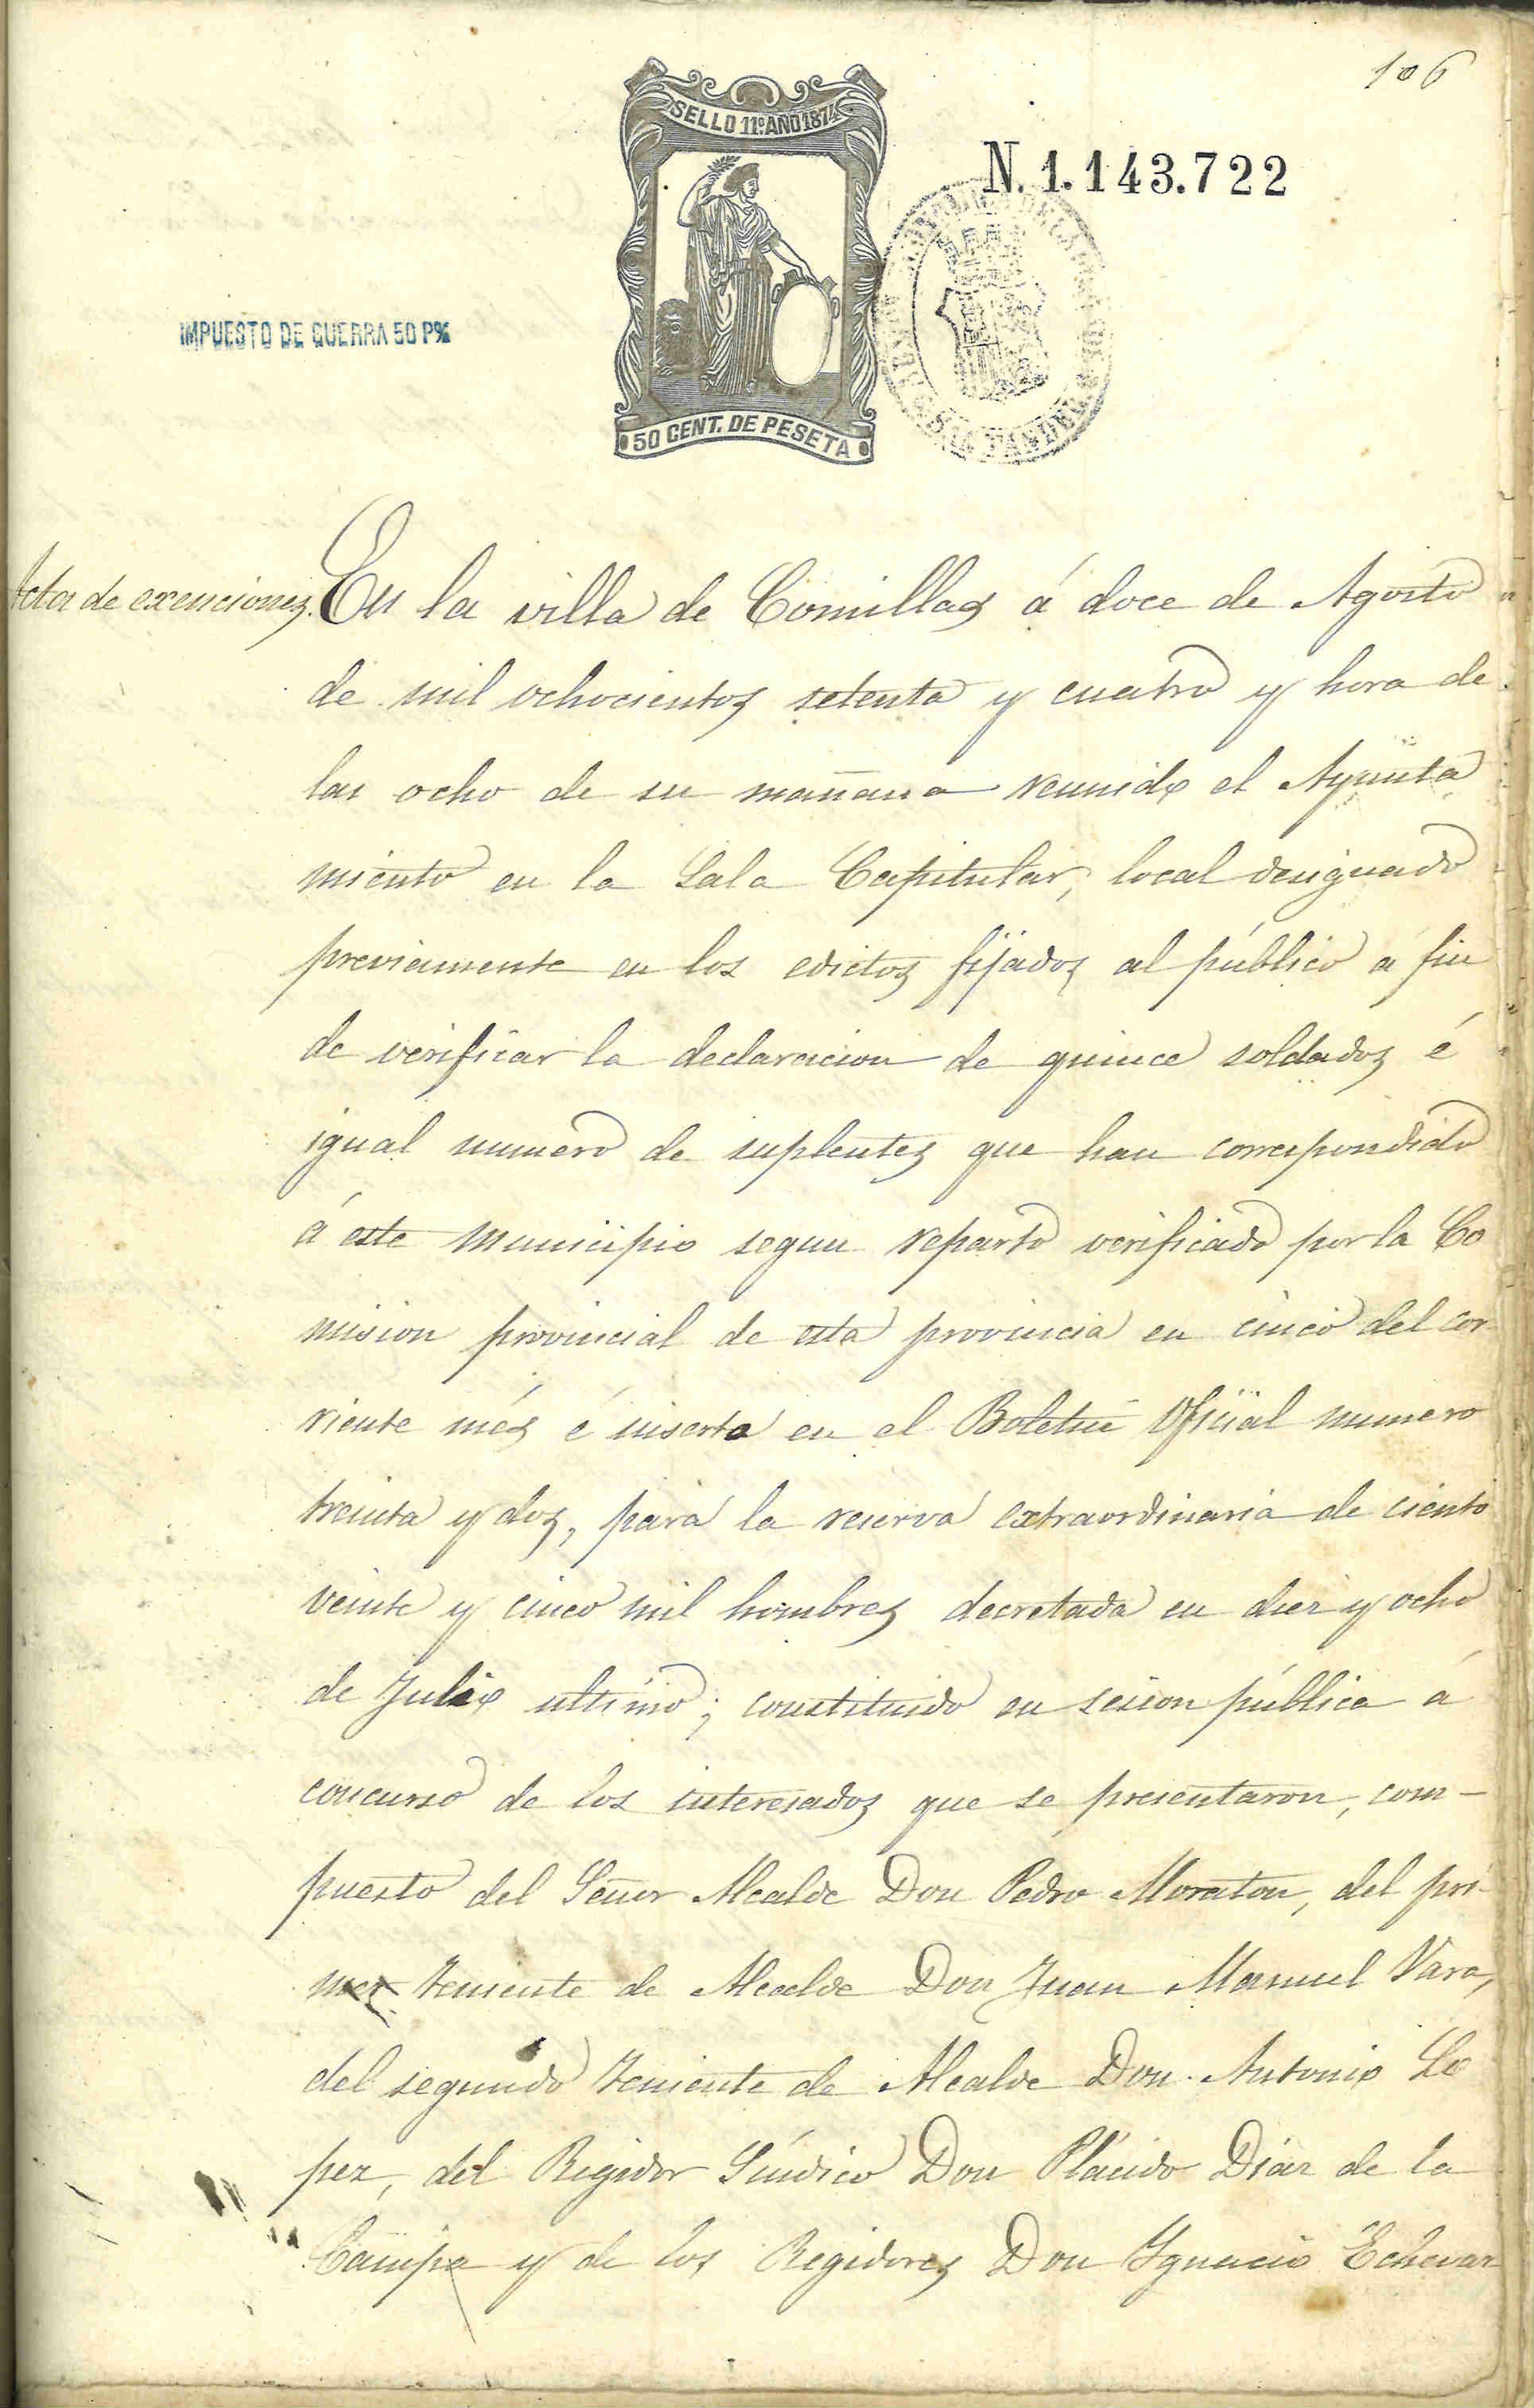 106
SELLO 11º AÑO 1874
N. 1.143.722
IMPUESTO DE GUERRA 50 P%
50 CENT. DE PESETA
SANTANDER
Acta de exenciones.
En la villa de Comillas á doce de Agosto
de mil ochocientos setenta y cuatro y hora de
las ocho de su mañana reunido el Ayunta
miento en la Sala Capitular, local designado
previamente en los edictos fijados al público a fin
de verificar la declaracion de quince soldados é
igual numero de suplentes que han correspondido
á este municipio segun reparto verificado por la Co
mision provincial de esta provincia en cinco del cor
riente més é inserto en el Boletin Oficial numero
treinta y dos, para la reserva extraordinaria de ciento
veinte y cinco mil hombres decretada en diez y ocho
de Julio ultimo; constituido en sesion pública á
concurso de los interesados que se presentaron, com-
puesto del Señor Alcalde Don Pedro Moraton, del pri-
mer Teniente de Alcalde Don Juan Manuel Vara,
del segundo Teniente de Alcalde Don Antonio Lo
pez, del Regidor Síndico Don Plácido Diáz de la
Campa y de los Regidores Don Ygnacio Echevar